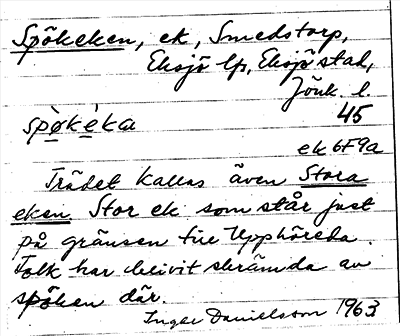 Spökeken, ek, Smedstorp,
Eksjö lfs, Eksjö stad,
Jönk. l.
45
spø̀kèka
ek 6F9a
Trädet kallas även Stora
eken. Stor ek som står just
på gränsen till Upphöreda.
Folk har blivit skrämda av
spöken där.
Inger Danielsson 1963